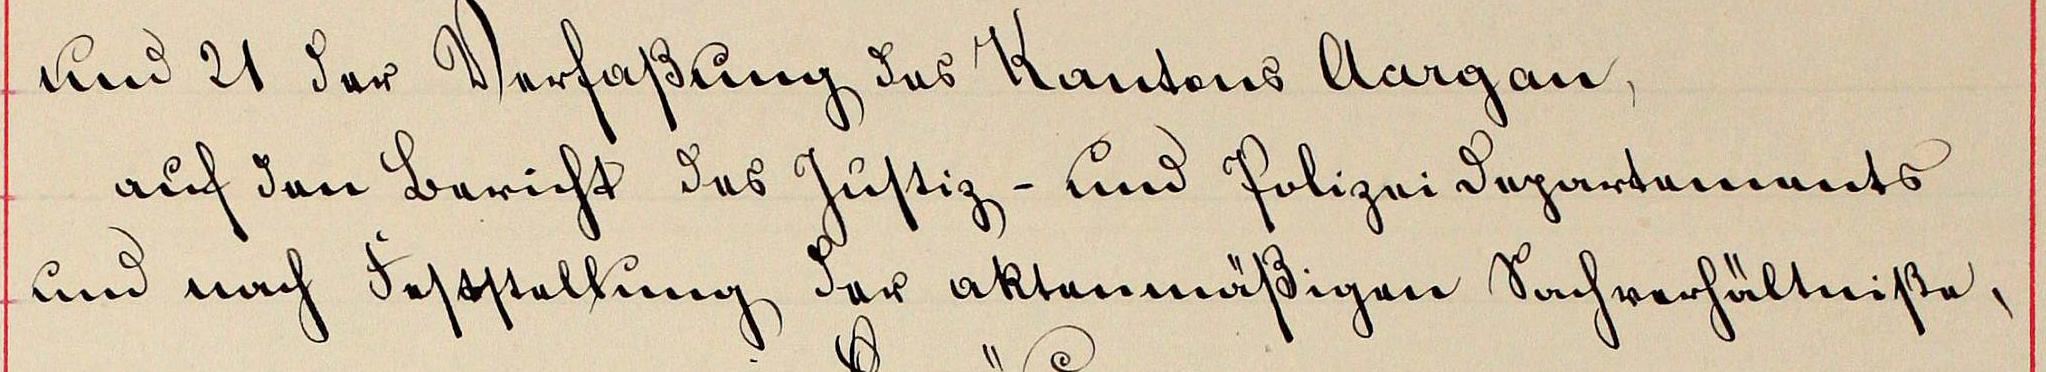 und 21 der Verfaßung des Kantons Aargau,
auf den Bericht des Justiz- und Polizeidepartements
und nach Feststellung der aktenmäßigen Sachverhältniße,